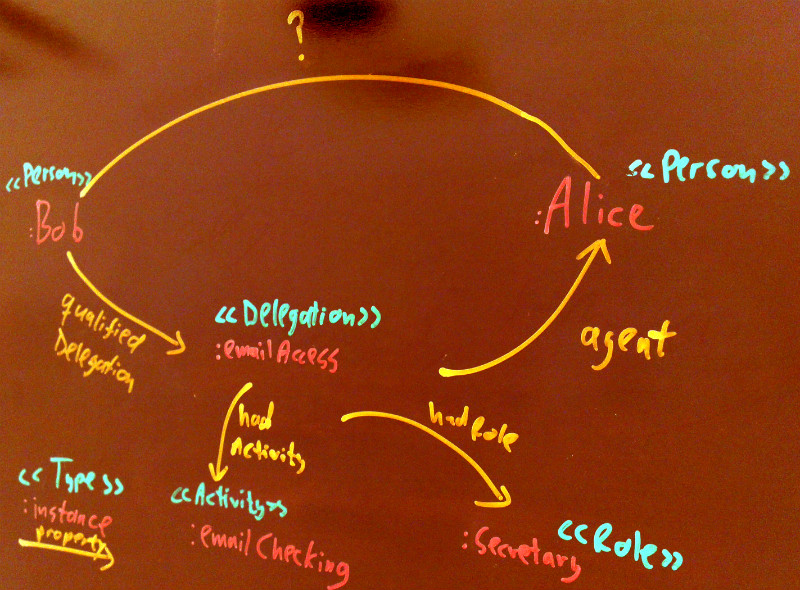 ?
<<Person>>
:Bob
<<Person>>
:Alice
qualified
Delegation
<<Delegation>>
:emailAccess
agent
had
Activity
hadRole
<<Type>>
:instance
property
<<Activity>>
:emailChecking
:Secretary
<<Role>>